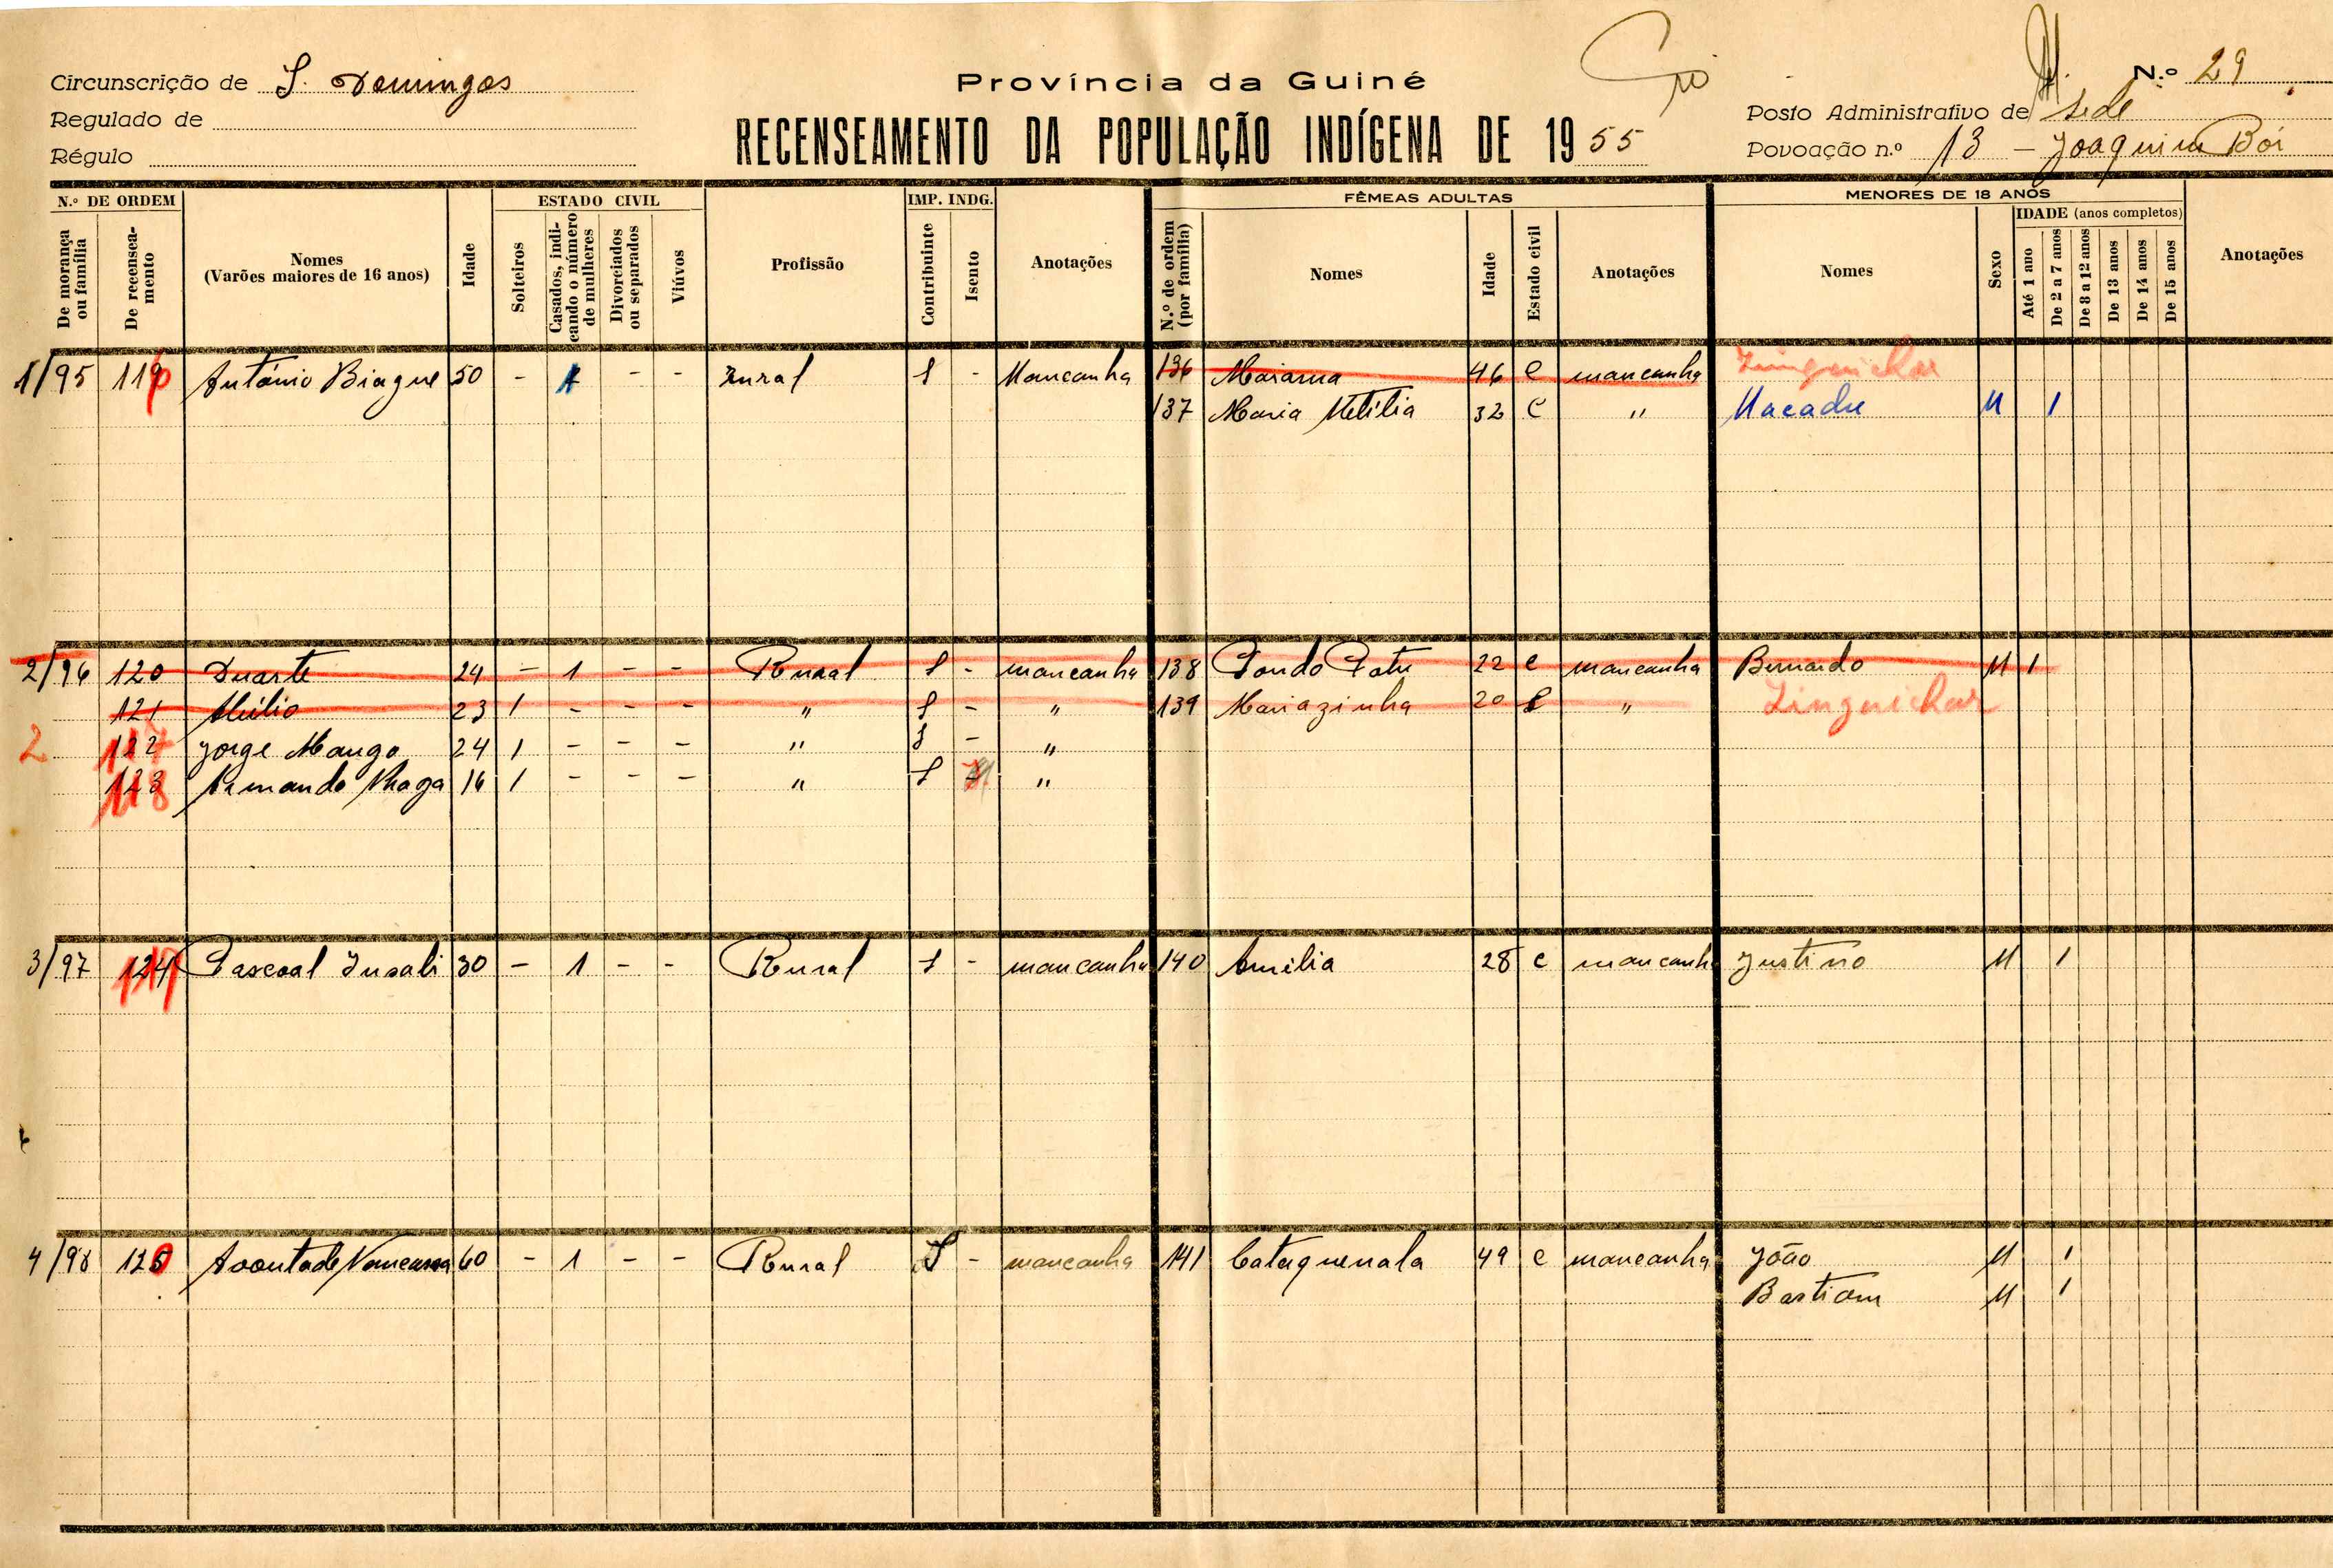 Circunscrição de S. Domingos
Regulado de
Régulo
Província da Guiné
RECENSEAMENTO DA POPULAÇÃO INDÍGENA DE 1955
N.º 29
Posto Administrativo de Sede
Povoação n.º 13 - Joaquim Bói
N.º DE ORDEM
De morança ou família
De recenseamento
Nomes
(Varões maiores de 16 anos)
Idade
ESTADO CIVIL
Solteiros
Casados, indicando o número de mulheres
Divorciados ou separados
Viúvos
Profissão
IMP. INDG.
Contribuinte
Isento
Anotações
FÊMEAS ADULTAS
N.º de ordem (por família)
Nomes
Idade
Estado civil
Anotações
MENORES DE 18 ANOS
Nomes
Sexo
IDADE (anos completos)
Até 1 ano
De 2 a 7 anos
De 8 a 12 anos
De 13 anos
De 14 anos
De 15 anos
Anotações
1/95 António Biague 50 - 1 - - Rural S - Mancanha 136 Maiama 46 C mancanha Zinguichor
137 Maria 32 C " Macadu M 1
2/96 120 Duarte 24 - 1 - - Rural S - mancanha 138 22 C mancanha Bernardo M 1
121 23 1 - - - " S - " 139 Mariazinha 20 " Zinguichor
2 122 117 Jorge Mango 24 1 - - - " S - "
123 118 Armando 16 1 - - - " S "
3/97 124 Pascoal 30 - 1 - - Rural S - mancanha 140 Amélia 28 C mancanha Justino M 1
4/98 60 - 1 - - Rural S - mancanha 141 49 C mancanha João M 1
Bastiam M 1